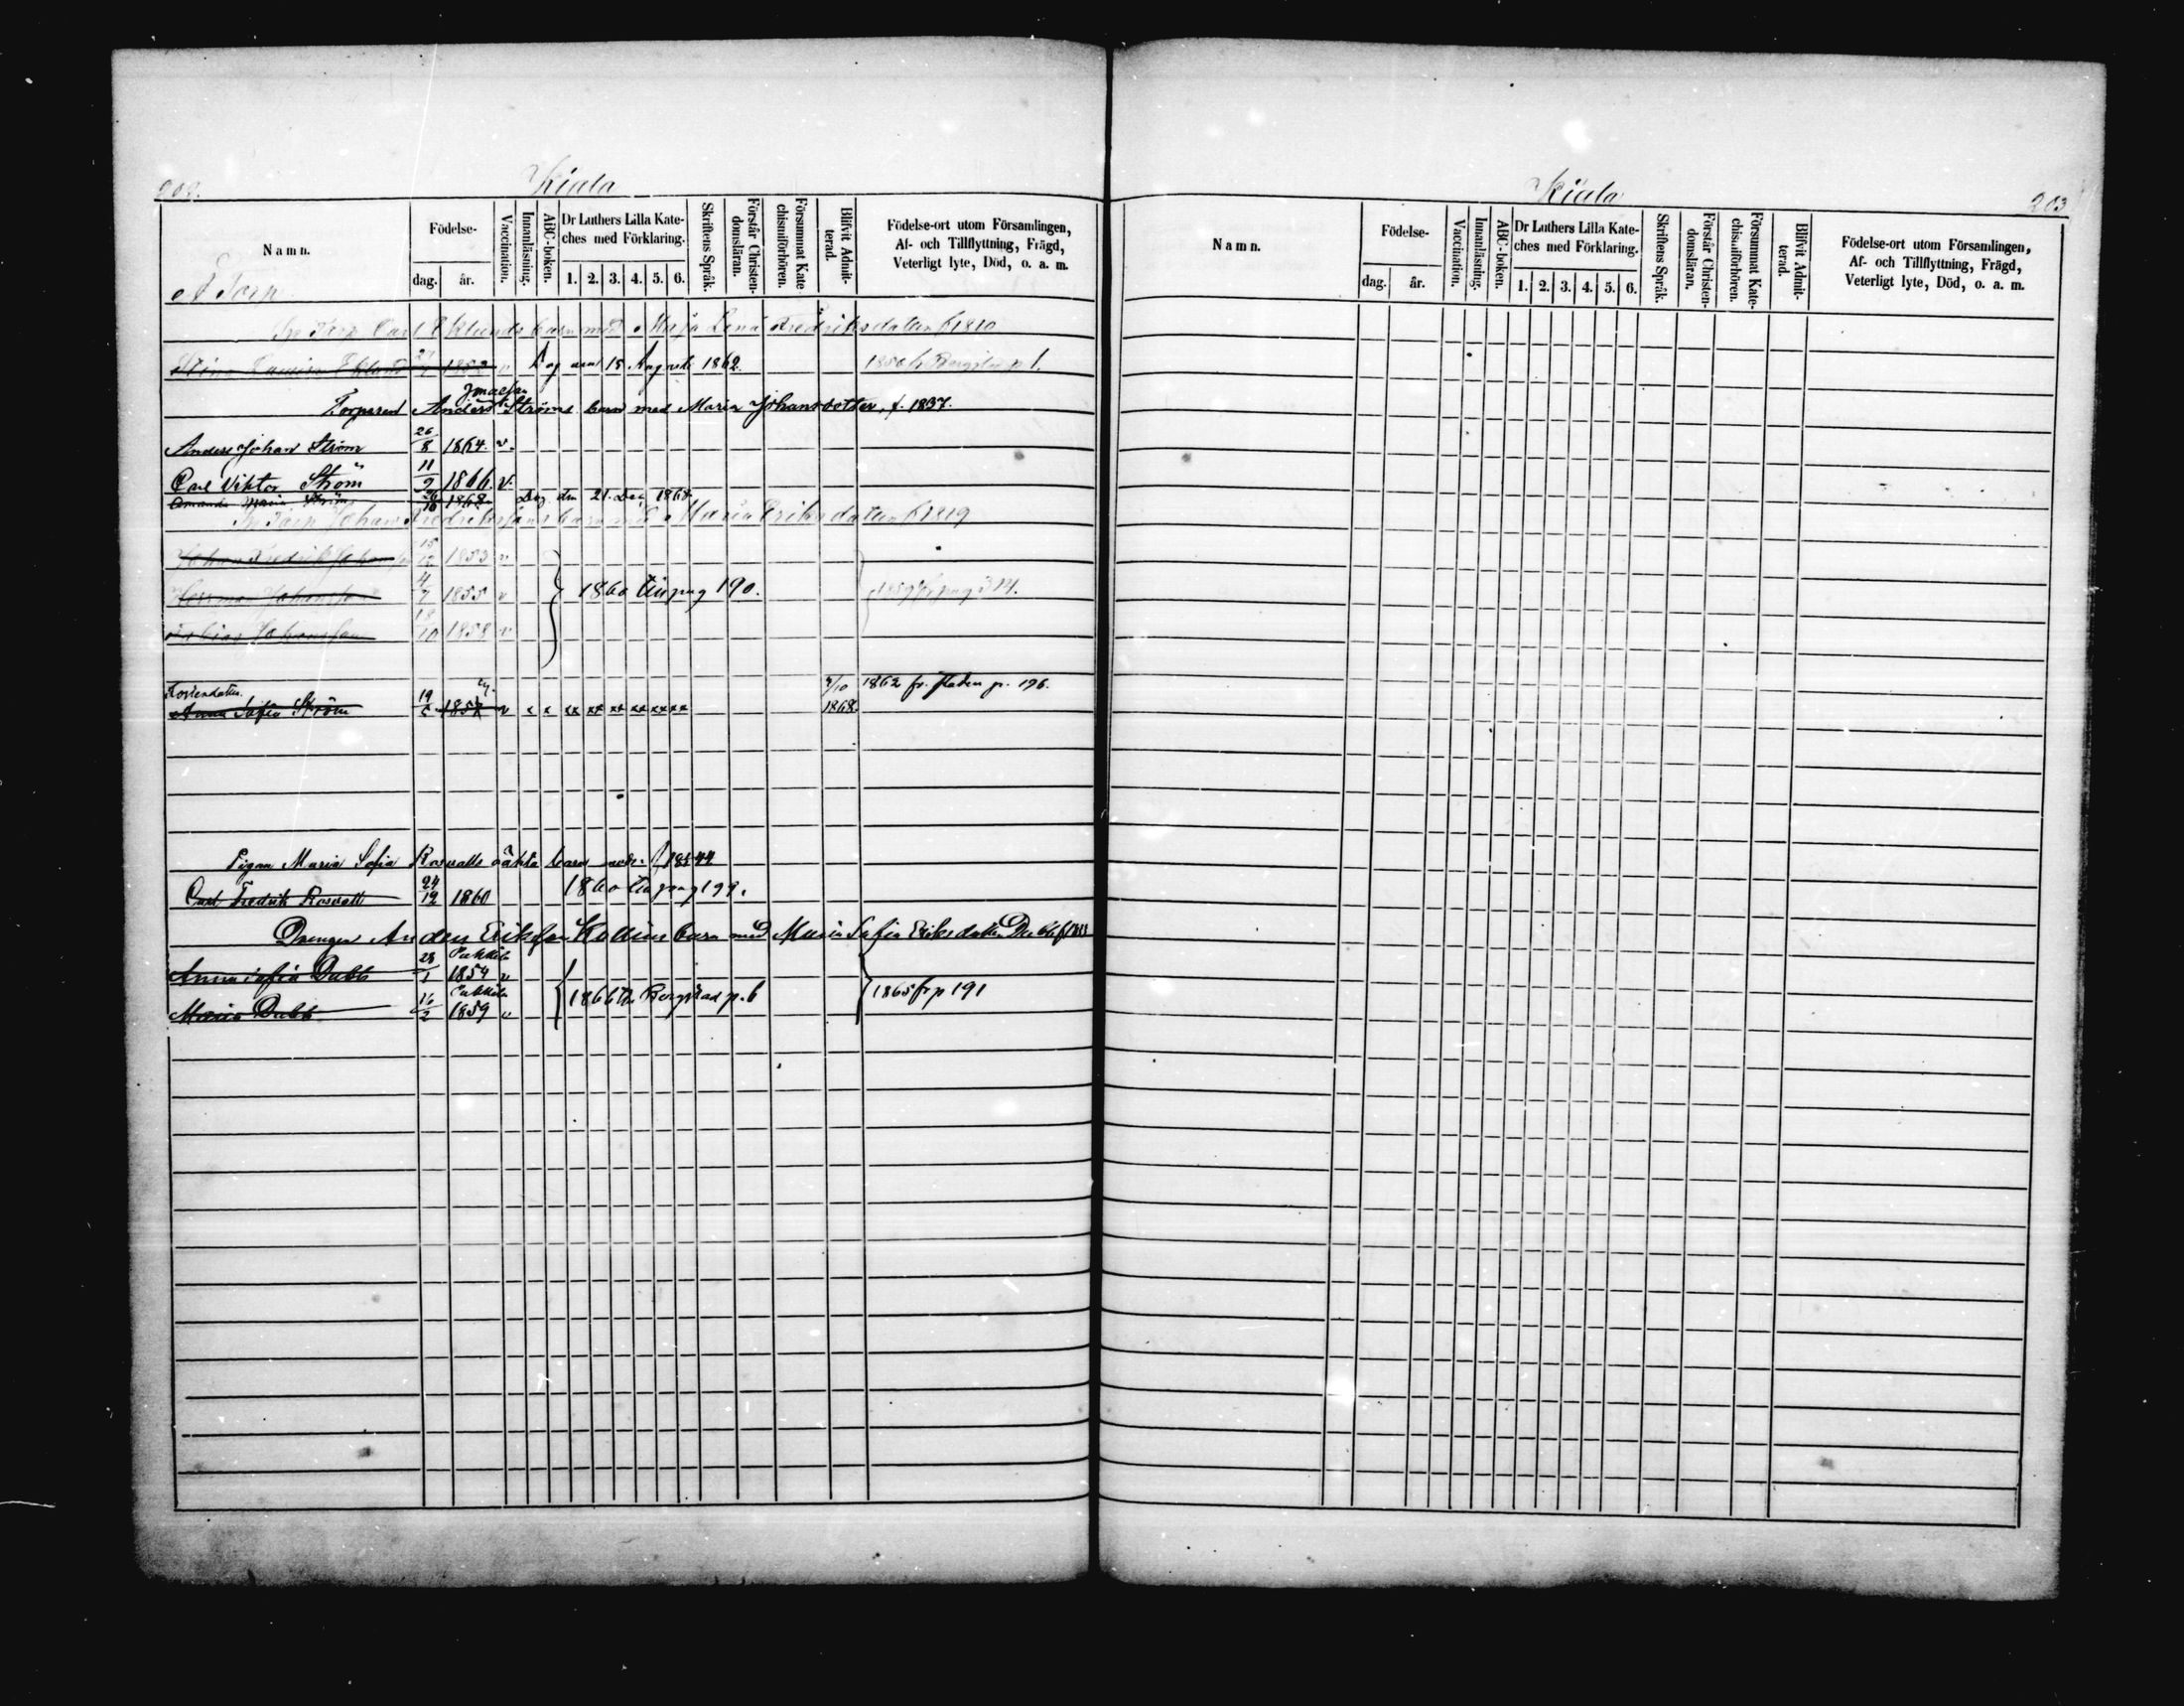 202.
Kiala
Namn.
Födelse-
dag.
år.
Vaccination.
Innanläsning.
ABC-boken.
Dr Luthers Lilla Kate-
ches med Förklaring.
1. 2. 3. 4. 5. 6.
Skriftens Språk.
Förstår Christen-
domsläran.
Försummat Kate
chismiförhören.
Blifvit Admit-
terad.
Födelse-ort utom Församlingen,
Af- och Tillflyttning, Frägd,
Veterligt lyte, Död, o. a. m.
Torp
Torp Carl Eklunds barn med Maja Lena Fredriksdatter f 1810
Stina Lovisa Eklund 1852 v Dog den 18 Augusti 1862.
Torparen Anders Ströms barn med Maria Johansdotter, f. 1837.
Anders Johan Ström 26/8 1864. v.
Carl Viktor Ström 11/9 1866. v.
Amanda Maria Ström 1868 Dog den 21. Dec. 1868.
Torp Johan Fredrikssons barn med Maria Eriksdatter f 1819
Johan Fredrik Johansson 15/12 1853 v
Herrman Johansson 4/7 1855 v 1860 till pag 190.
Tobias Johansson 18/10 1858 v
4/10 1862 fr. staden p. 196.
Anna Sofia Ström 19 v x x xx xx xx xx xx xx 1868.
Pigan Maria Sofia Rosvalls oäkta barn 1844
Carl Fredrik Rosvall 24/12 1860 1860 till pag 199.
Drengen Anders Eriksson Kollins barn med Maria Sofia Eriksdatter Dubb
Pukkila
Anna Sofia Dubb 28/1 1854 v
Pukkila
Maria Dubb 16/2 1859 v 1866 till Borgstad p. 6 1865 fr p 191
Kiala
203
Namn.
Födelse-
dag.
år.
Vaccination.
Innanläsning.
ABC-boken.
Dr Luthers Lilla Kate-
ches med Förklaring.
1. 2. 3. 4. 5. 6.
Skriftens Språk.
Förstår Christen-
domsläran.
Försummat Kate-
chismiförhören.
Blifvit Admit-
terad.
Födelse-ort utom Församlingen,
Af- och Tillflyttning, Frägd,
Veterligt lyte, Död, o. a. m.